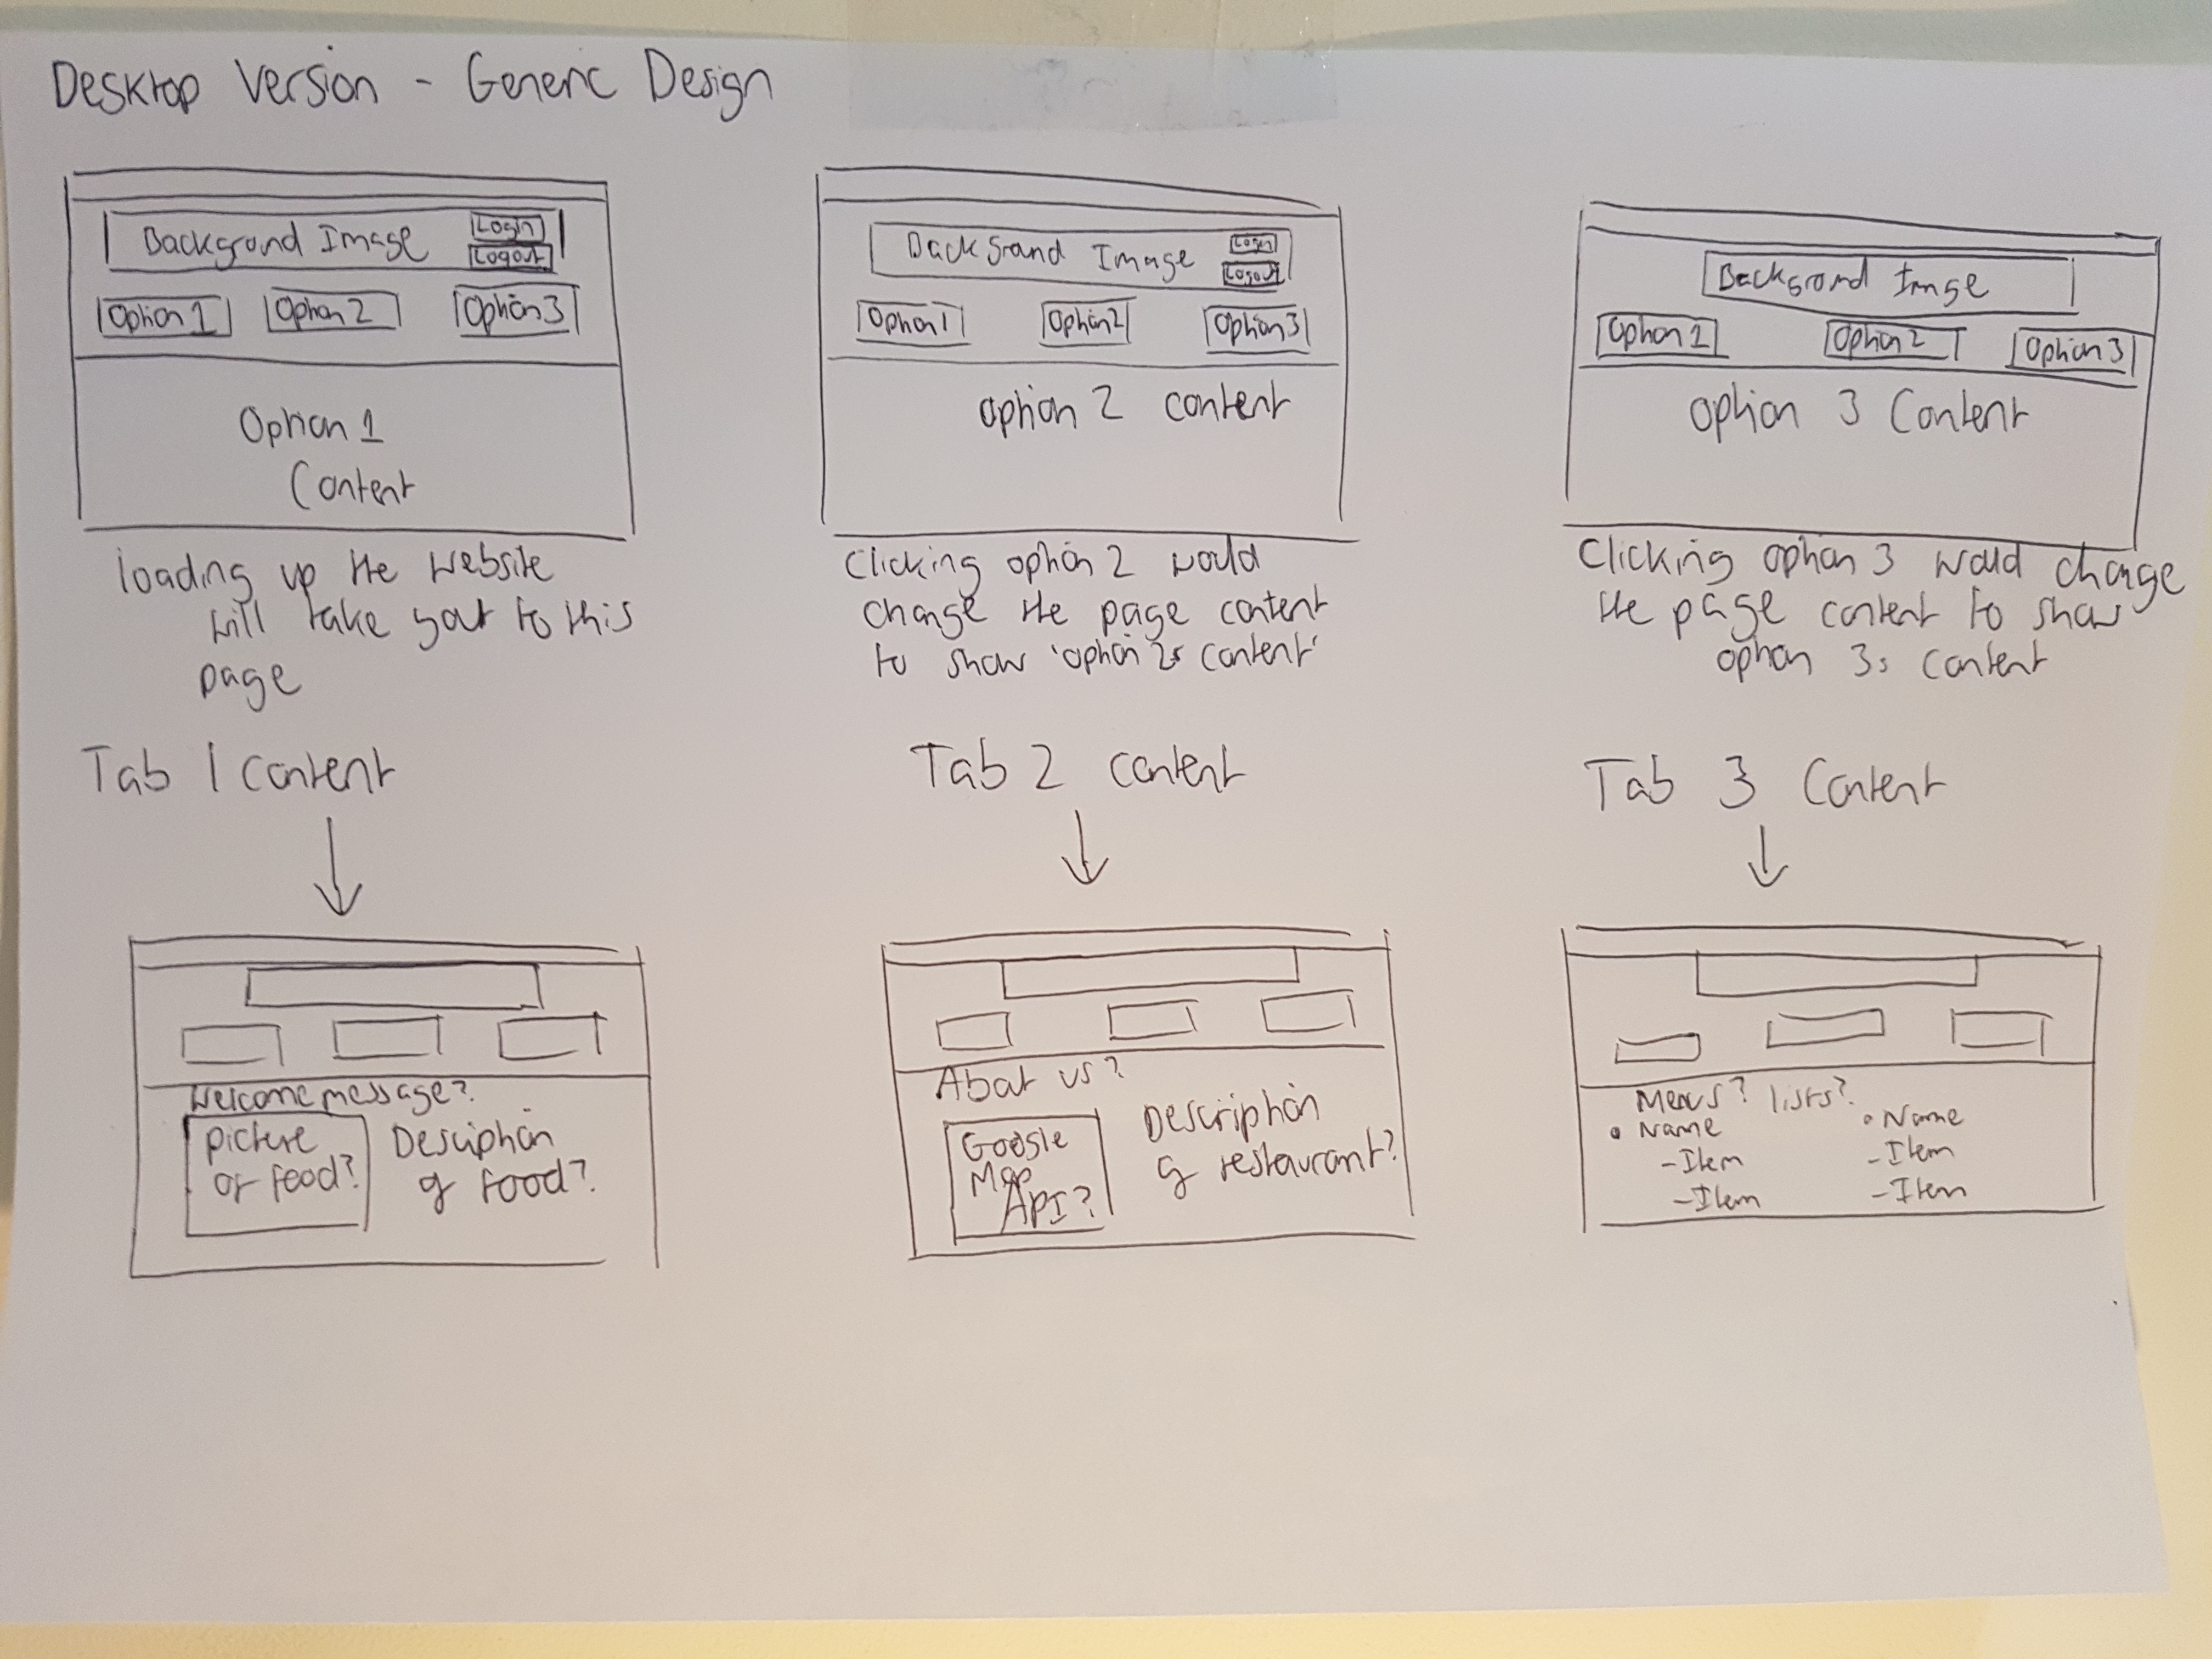 Desktop Version - Generic Design
Background Image
Login
Logout
Option 1
Option 2
Option 3
Option 1
Content
loading up the website
will take your to this
page
Background Image
Login
Logout
Option 1
Option 2
Option 3
Option 2 content
Clicking option 2 would
change the page content
to show 'option 2s content'
Background Image
Option 1
Option 2
Option 3
Option 3 Content
Clicking option 3 would change
the page content to show
option 3s content
Tab 1 Content
Welcome message?
Picture
of food?
Desciption
of food?
Tab 2 content
About us?
Google
Map
API?
Description
of restaurant?
Tab 3 Content
Menus? lists?
• Name
-Item
-Item
• Name
-Item
-Item